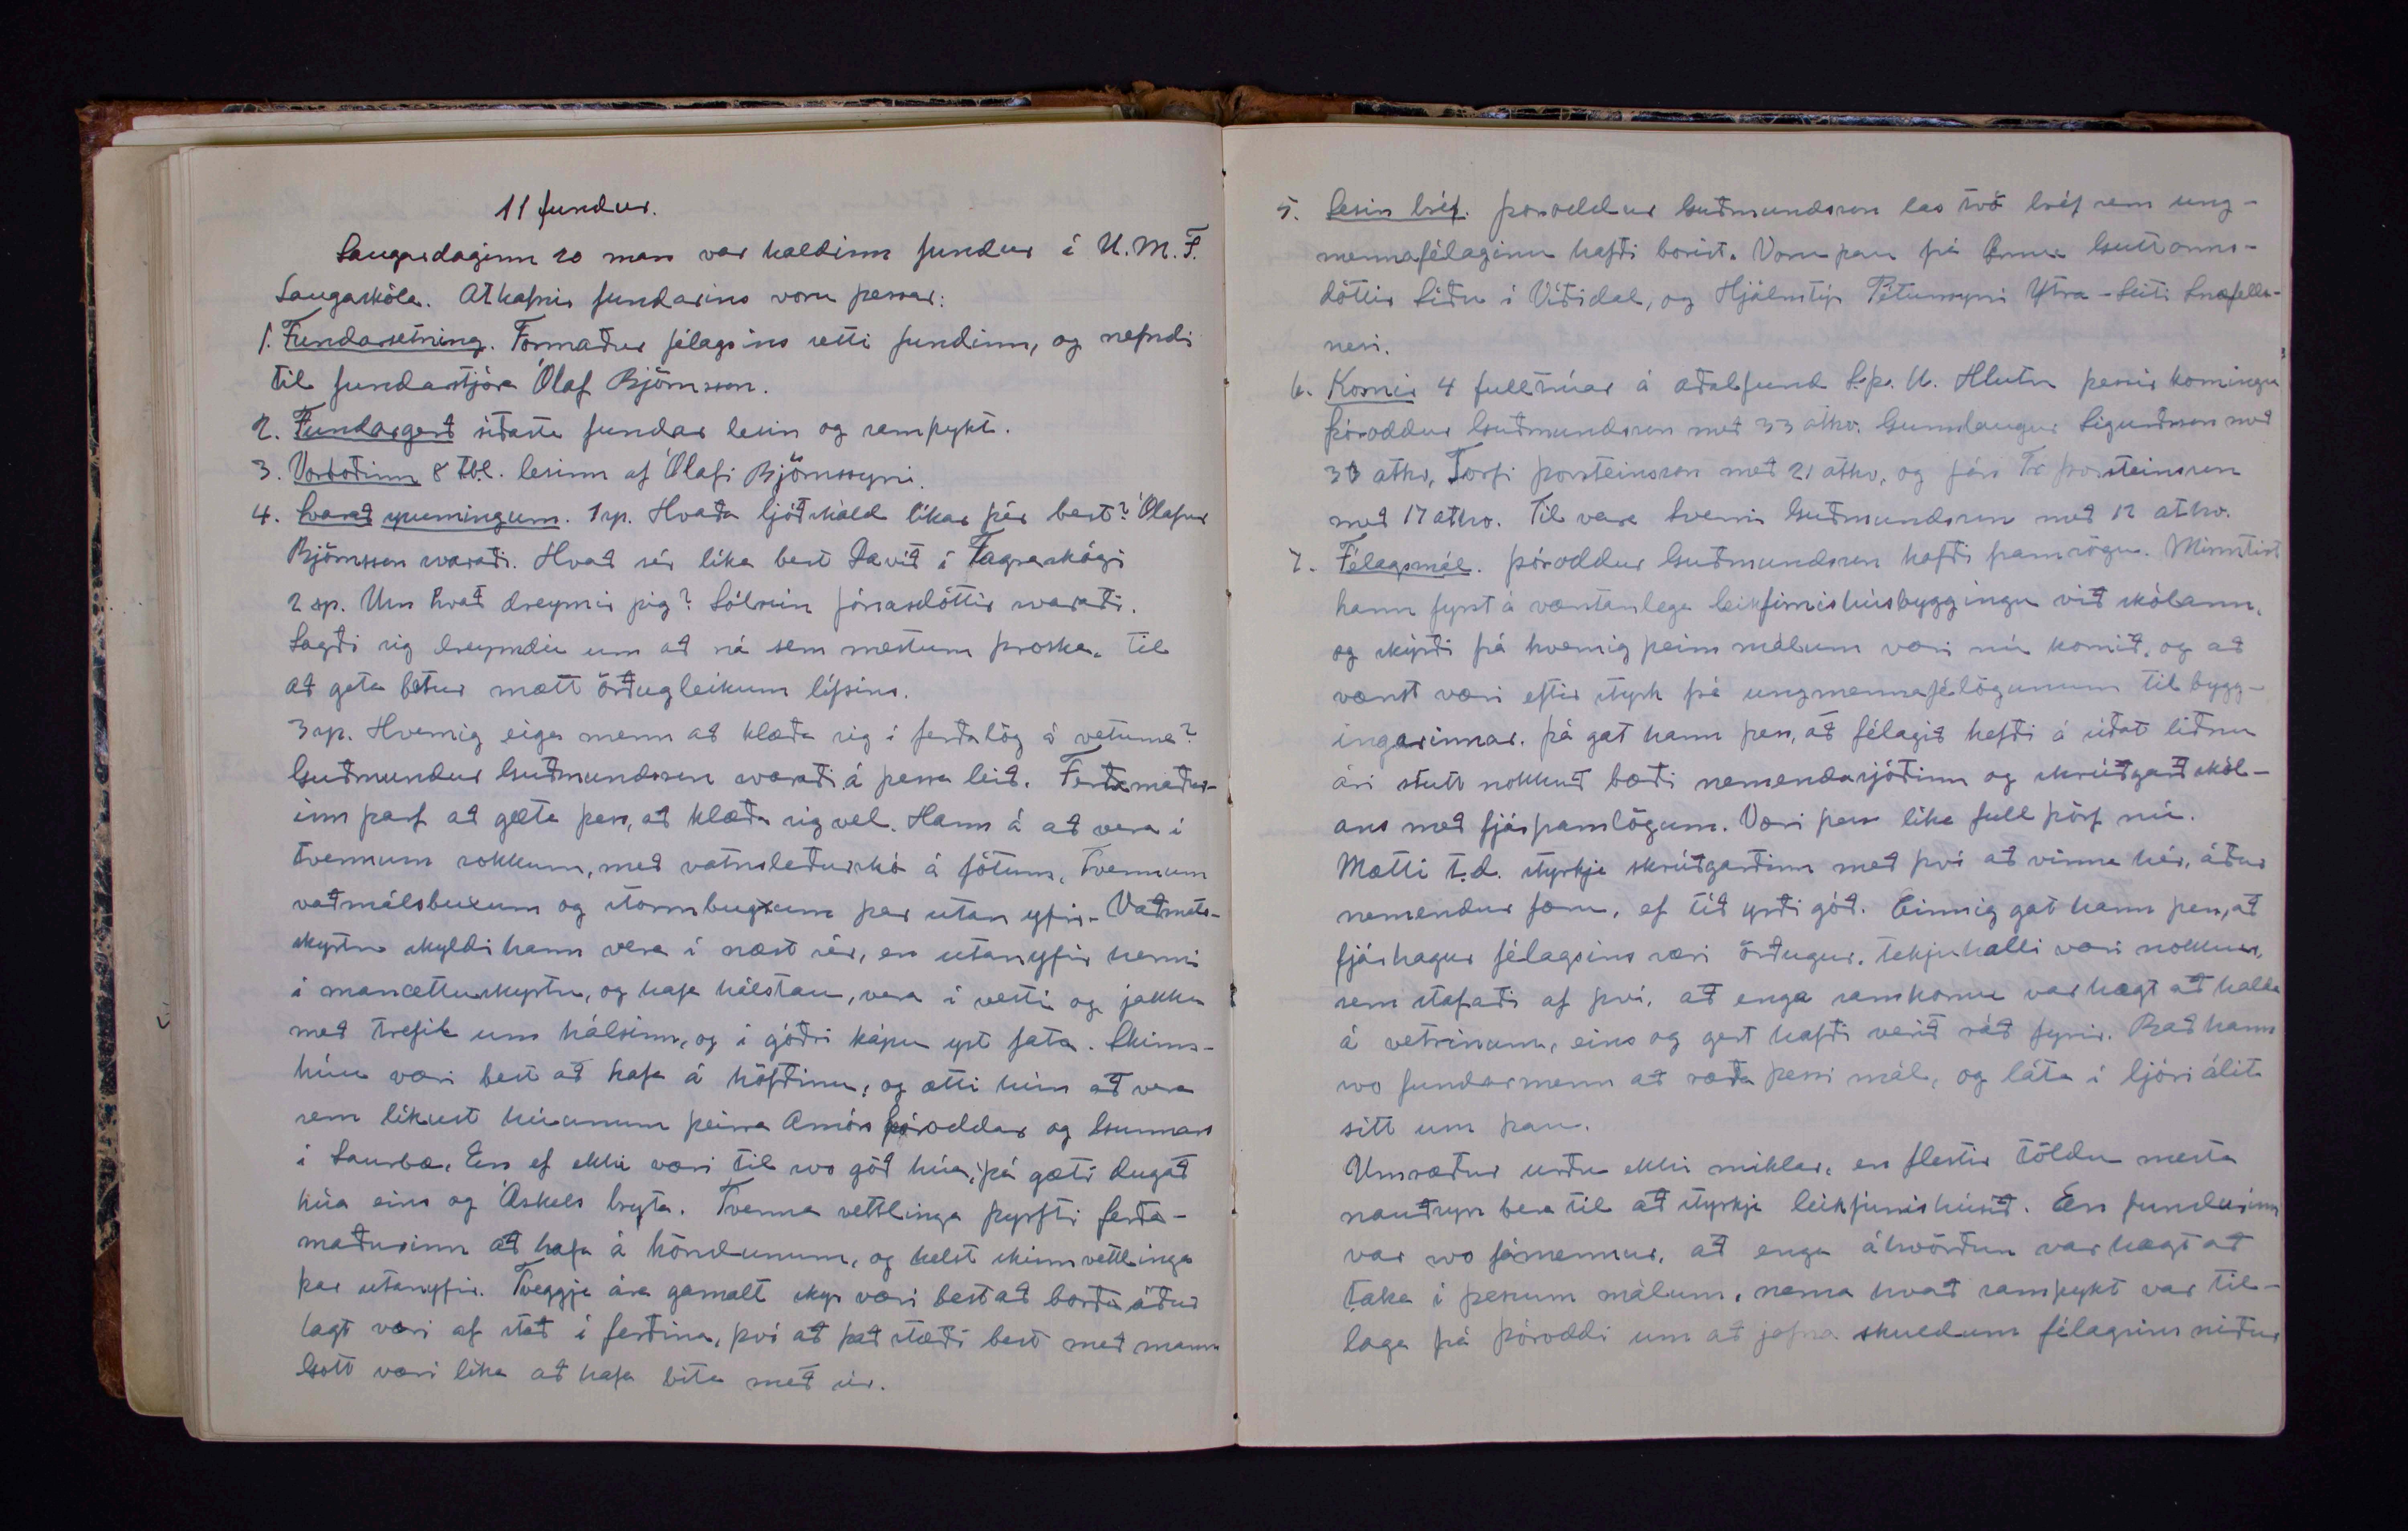 11 fundur.
Laugardaginn 20 mars var haldinn fundur í U.M.F.
Laugaskóla. Athafnir fundarins voru þessar:
1. Fundarsetning. Formaður félagsins setti fundinn, og nefndi
til fundarstjóra Ólaf Björnsson.
2. Fundargerð síðasta fundar lesin og samþykt.
3. Vorboðinn 8 tbl. lesinn af Ólafi Björnssyni.
4. Svarað spurningum. 1 sp. Hvaða ljóðskáld líkar þér best? Ólafur
Björnsson svaraði. Hvað sér líka best Davíð í Fagraskógi
2 sp. Um hvað dreymir þig? Sólrún Jónasdóttir svaraði.
Sagði sig dreymdi um að ná sem mestum þroska. til
að geta betur mætt örðugleikum lífsins.
3 sp. Hvernig eiga menn að klæða sig í ferðalög á veturna?
Guðmundur Guðmundsson svaraði á þessa leið. Ferðamaður-
inn þarf að gæta þess, að klæða sig vel. Hann á að vera í
tvennum sokkum, með vatnsleðurskó á fótum, tvennum
vaðmálsbuxum og stormbuxum þar utan yfir. Vaðmáls-
skyrtu skyldi hann vera í næst sér, en utanyfir henni
í mancettuskyrtu, og hafa hálstau, vera í vesti og jakka
með trefil um hálsinn, og í góðri kápu yst fata. Skinn-
húu væri best að hafa á höfðinu, og ætti hún að vera
sem líkust húunum þeirra Arnórs Þóroddar og Gunnars
í Saurbæ. En ef ekki væri til svo góð húa, þá gæti dugað
húa eins og Áskels bryta. Tvenna vettlinga þyrfti ferða-
maðurinn að hafa á höndunum, og helst skinnvettlinga
þar utanyfir. Tveggja ára gamalt skyr væri best að borða áður
lagt væri af stað í ferðina, því að það stæði best með manni
Gott væri líka að hafa bita með sér.
5. Lesin bréf. Þóroddur Guðmundsson las tvö bréf sem ung-
mennafélaginu hafði borist. Voru þau frá Önnu Guttorms-
dóttir Síðu í Víðidal, og Hjálmtýr Péturssyni Ytra-Leiti Snæfells-
nesi.
6. Kosnir 4 fulltrúar á aðalfund S.þ.U. Hlutu þessir kosningu
Þóroddur Guðmundsson með 33 atkv. Gunnlaugur Sigurðsson með
33 atkv, Torfi Þorsteinsson með 21 atkv, og Jón Tr Þorsteinsson
með 17 atkv. Til vara Sverrir Guðmundsson með 12 atkv.
7. Félagsmál. Þóroddur Guðmundsson hafði framsögu. Mintist
hann fyrst á væntanlega leikfimishúsbyggingu við skólann,
og skýrði frá hvernig þeim málum væri nú komið, og að
vænst væri eftir styrk frá ungmennafélögunum til bygg-
ingarinnar. Þá gat hann þess, að félagið hefði á síðast liðnu
ári stutt nokkuð bæði nemendasjóðinn og skrúðgarð skól-
ans með fjárframlögum. Væri þess líka full þörf nú.
Mætti t.d. styrkja skrúðgarðinn með því að vinna hér, áður
nemendur færu, ef tíð yrði góð. Einnig gat hann þess, að
fjárhagur félagsins væri örðugur, tekjuhalli væri nokkur,
sem stafaði af því, að enga samkomu var hægt að halda
á vetrinum, eins og gert hafði verið ráð fyrir. Bað hann
svo fundarmenn að ræða þessi mál, og láta í ljósi álit
sitt um þau.
Umræður urðu ekki miklar, en flestir töldu mesta
nauðsyn bera til að styrkja leikfimishúsið. En fundurinn
var svo fámennur, að enga ákvörðun var hægt að
taka í þessum málum, nema hvað samþykt var til-
laga frá Þóroddi um að jafna skuldum félagsins niður